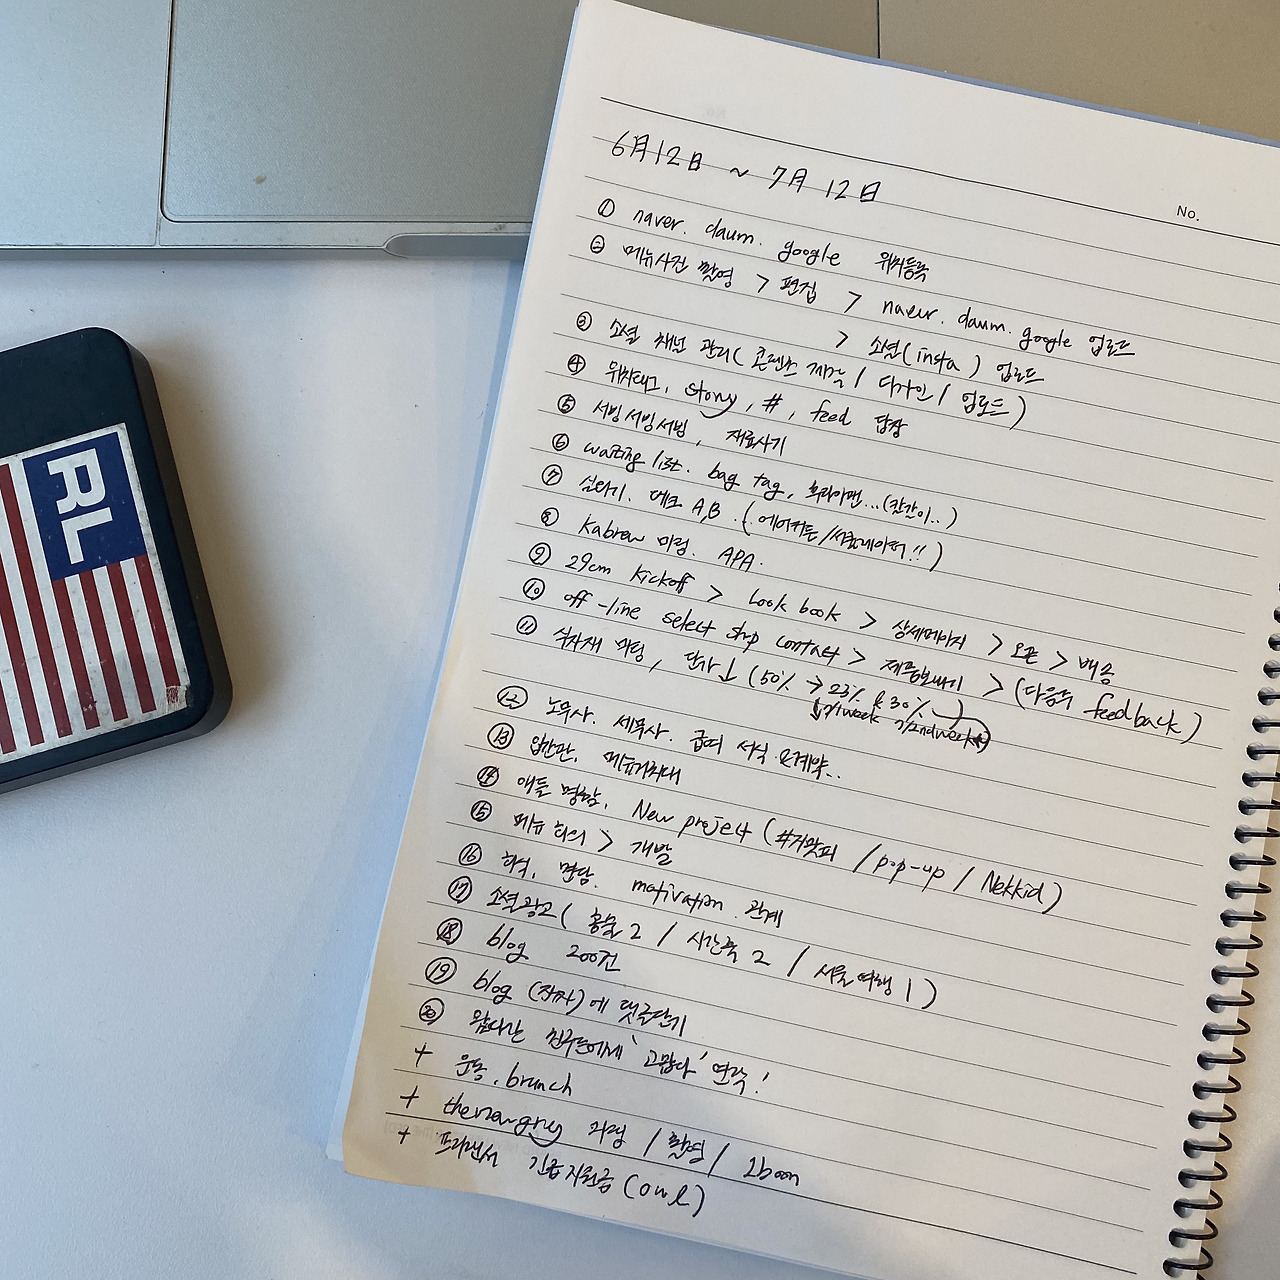 No.
6月12日 ~ 7月 12日
① naver. daum. google 위치등록
② 메뉴사진 촬영 > 편집 > naver. daum. google 업로드
> 소셜(insta) 업로드
③ 소셜 채널 관리(콘텐츠 제작 / 디자인 / 업로드)
④ 위치태그, story, #, feed 답장
⑤ 서빙서빙서빙, 재료사기
⑥ waiting list. bag tag, 후라이팬...(간간이..)
⑦ 실타기. 데크 A,B. (에어커튼 / !!)
⑧ Kabrew 미팅. APA.
⑨ 29cm Kickoff > Look book > 상세페이지 > 오픈 > 배송
⑩ off-line select shop contact > 제품보내기 > (다음주 feedback)
⑪ 식자재 미팅, 단가↓ (50% → 23% & 30%)
7/1week 7/2ndweek
⑫ 노무사. 세무사. 급여 서식 요계약..
⑬ 입간판, 메뉴거치대
⑭ 애들 명함, New project (#거맞피 / pop-up / Nekkid)
⑮ 메뉴 회의 > 개발
⑯ 회식, 면담. motivation. 관계
⑰ 소셜광고( 홍울 2 / 시간쪽 2 / 서울여행 1 )
⑱ blog 200건
⑲ blog (진짜)에 댓글달기
⑳ 왔다간 친구들에게 '고맙다' 연락!
+ 운동, brunch
+ thenewgrey 미팅 / 촬영 / 1boon
+ 프리랜서 긴급지원금 (owe)
RL